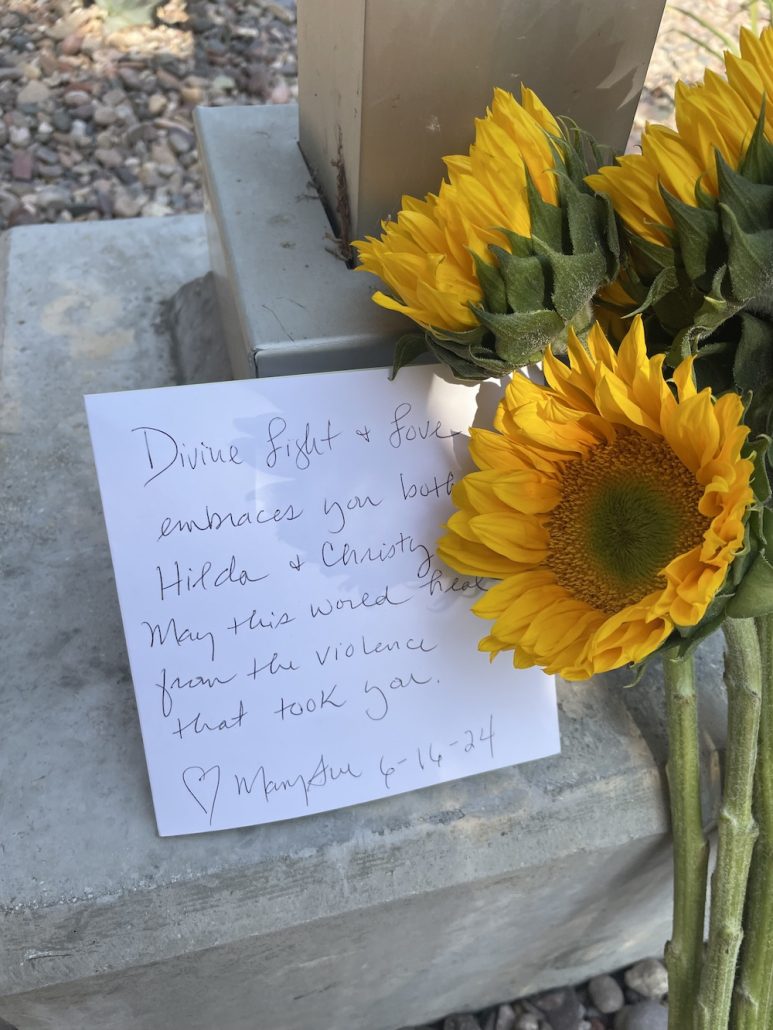 Divine Light + Love
embraces you both
Hilda + Christy
May this world heal
from the violence
that took you.
♡ MarySue 6-16-24